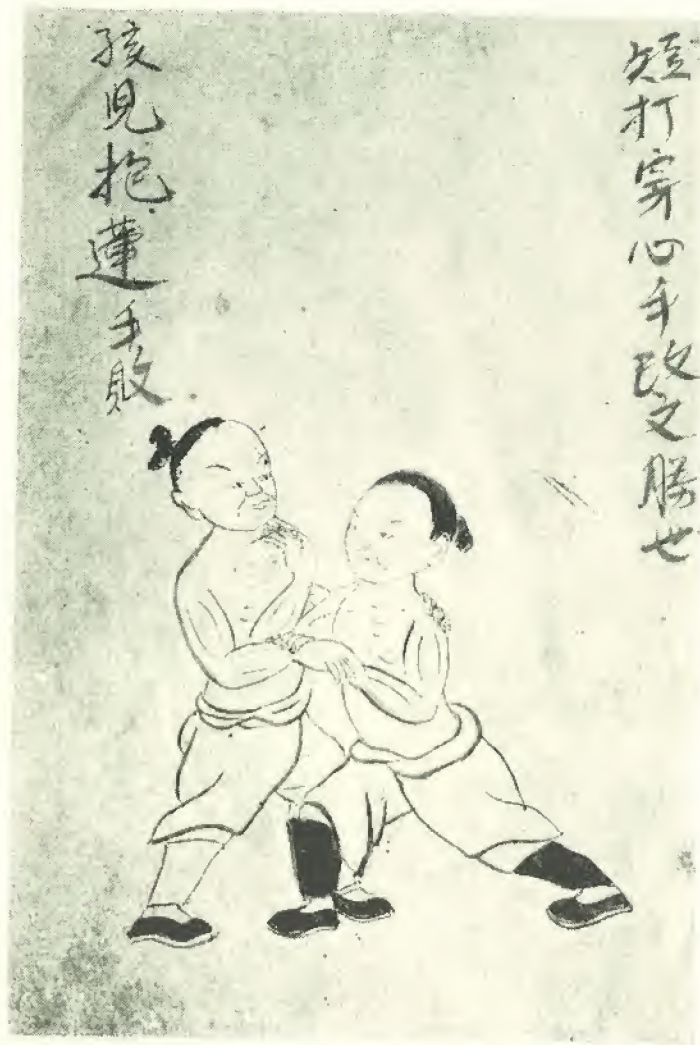 短打穿心手改文勝也
孩兒抱蓮手敗